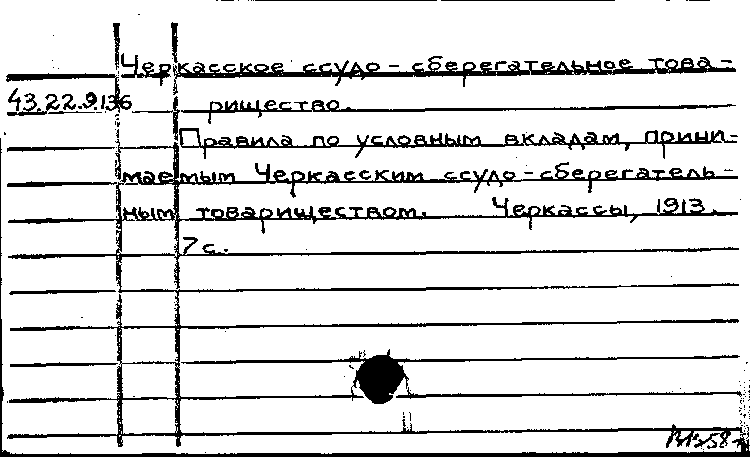 Черкасское ссудо-сберегательное това-
43.22.9.136 рищество.
Правила по условным вкладам, прини-
маемым Черкасским ссудо-сберегатель-
ным товариществом. Черкассы, 1913.
7 с.